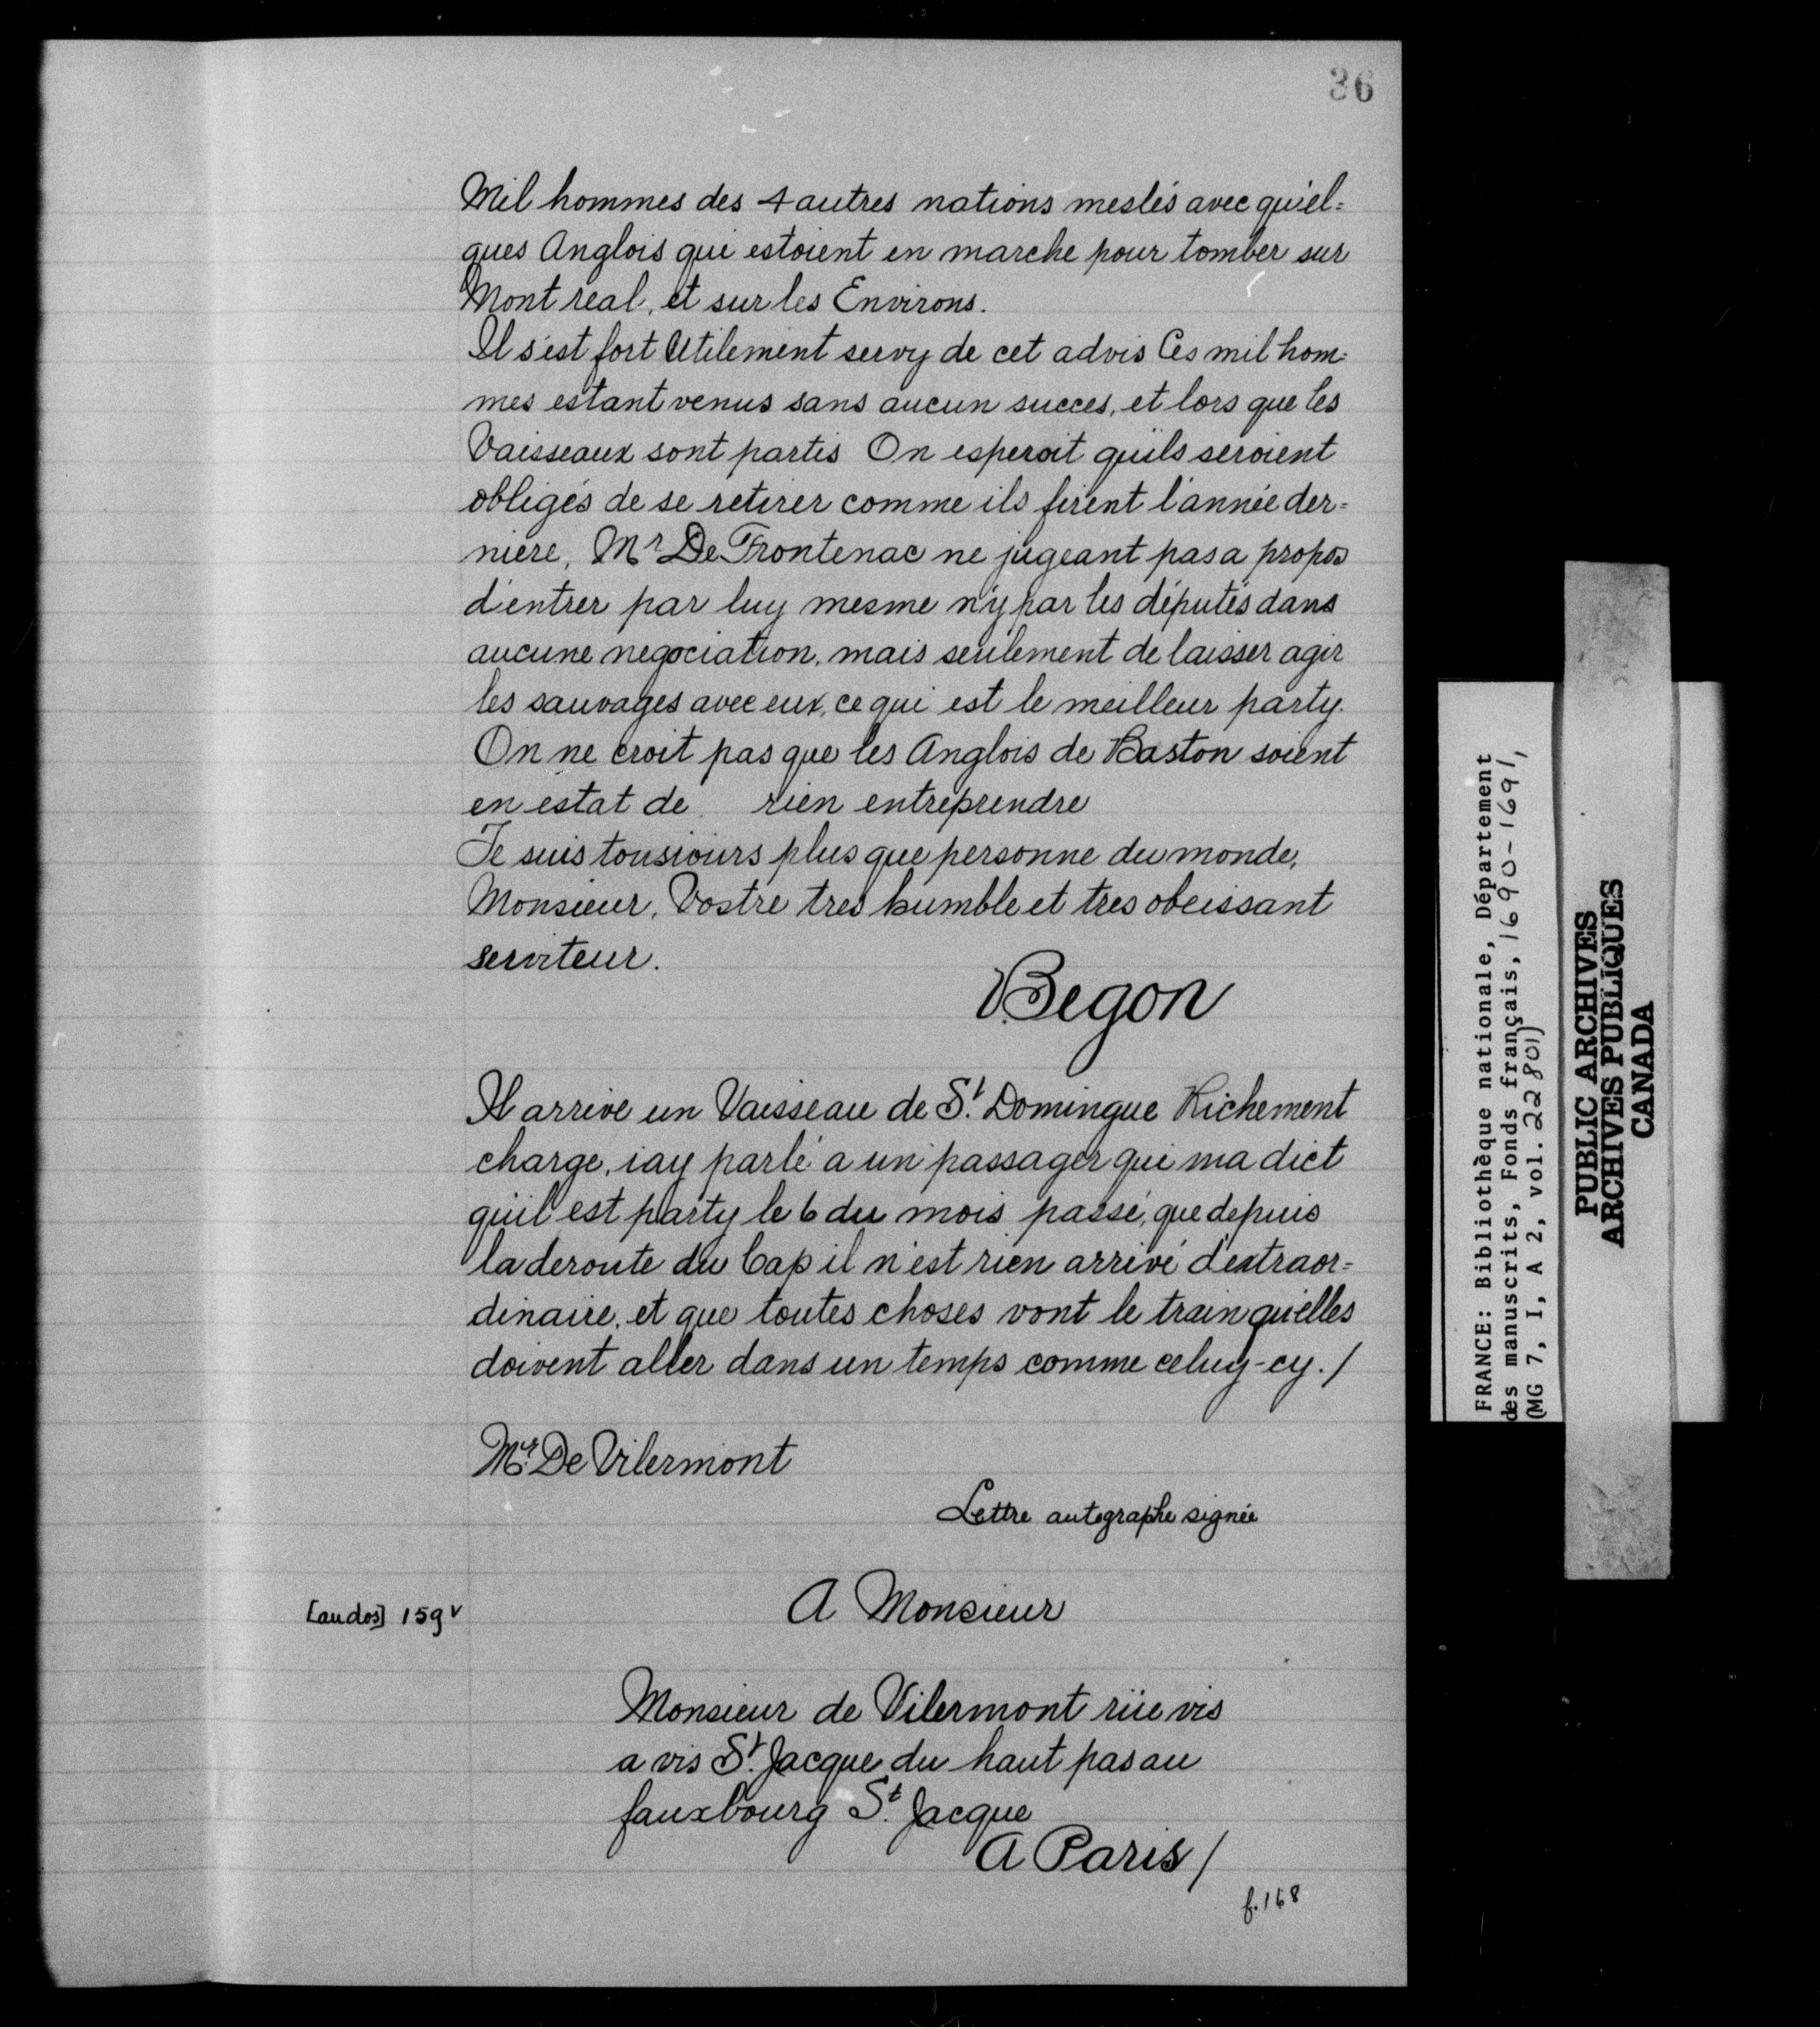 36
Mil hommes des 4 autres nations meslés avec qu'el=
ques Anglois qui estoient en marche pour tomber sur
Mont real, et sur les Environs.
Il s'est fort Utilement servy de cet advis Ces mil hom=
mes estant venus sans aucun succes, et lors que les
Vaisseaux sont partis On esperoit qu'ils seroient
obligés de se retirer comme ils firent l'année der=
niere, Mr De Frontenac ne jugeant pas a propos
d'entrer par luy mesme n'y par les députés dans
aucune negociation, mais seulement de laisser agir
les sauvages avec eux, ce qui est le meilleur party.
On ne croit pas que les Anglois de Baston soient
en estat de rien entreprendre
Je suis tousiours plus que personne du monde,
Monsieur, Vostre tres humble et tres obeissant
serviteur.
Begon
Il arrive un Vaisseau de St. Domingue Richement
charge, iay parlé a un passager qui ma dict
qu'il est party le 6 du mois passé, que depuis
la deroute du Cap il n'est rien arrivé d'extraor=
dinaire, et que toutes choses vont le train qu'elles
doivent aller dans un temps comme celuy-cy. /
Mr. De Vilermont
Lettre autographe signée
[au dos] 159 v
A Monsieur
Monsieur de Vilermont rüe vis
a vis St. Jacque du haut pas au
fauxbourg St. Jacque
A Paris /
f. 168
FRANCE: Bibliothèque nationale, Département
des manuscrits, Fonds français, 1690-1691,
(MG 7, I, A 2, vol. 22801)
PUBLIC ARCHIVES
ARCHIVES PUBLIQUES
CANADA